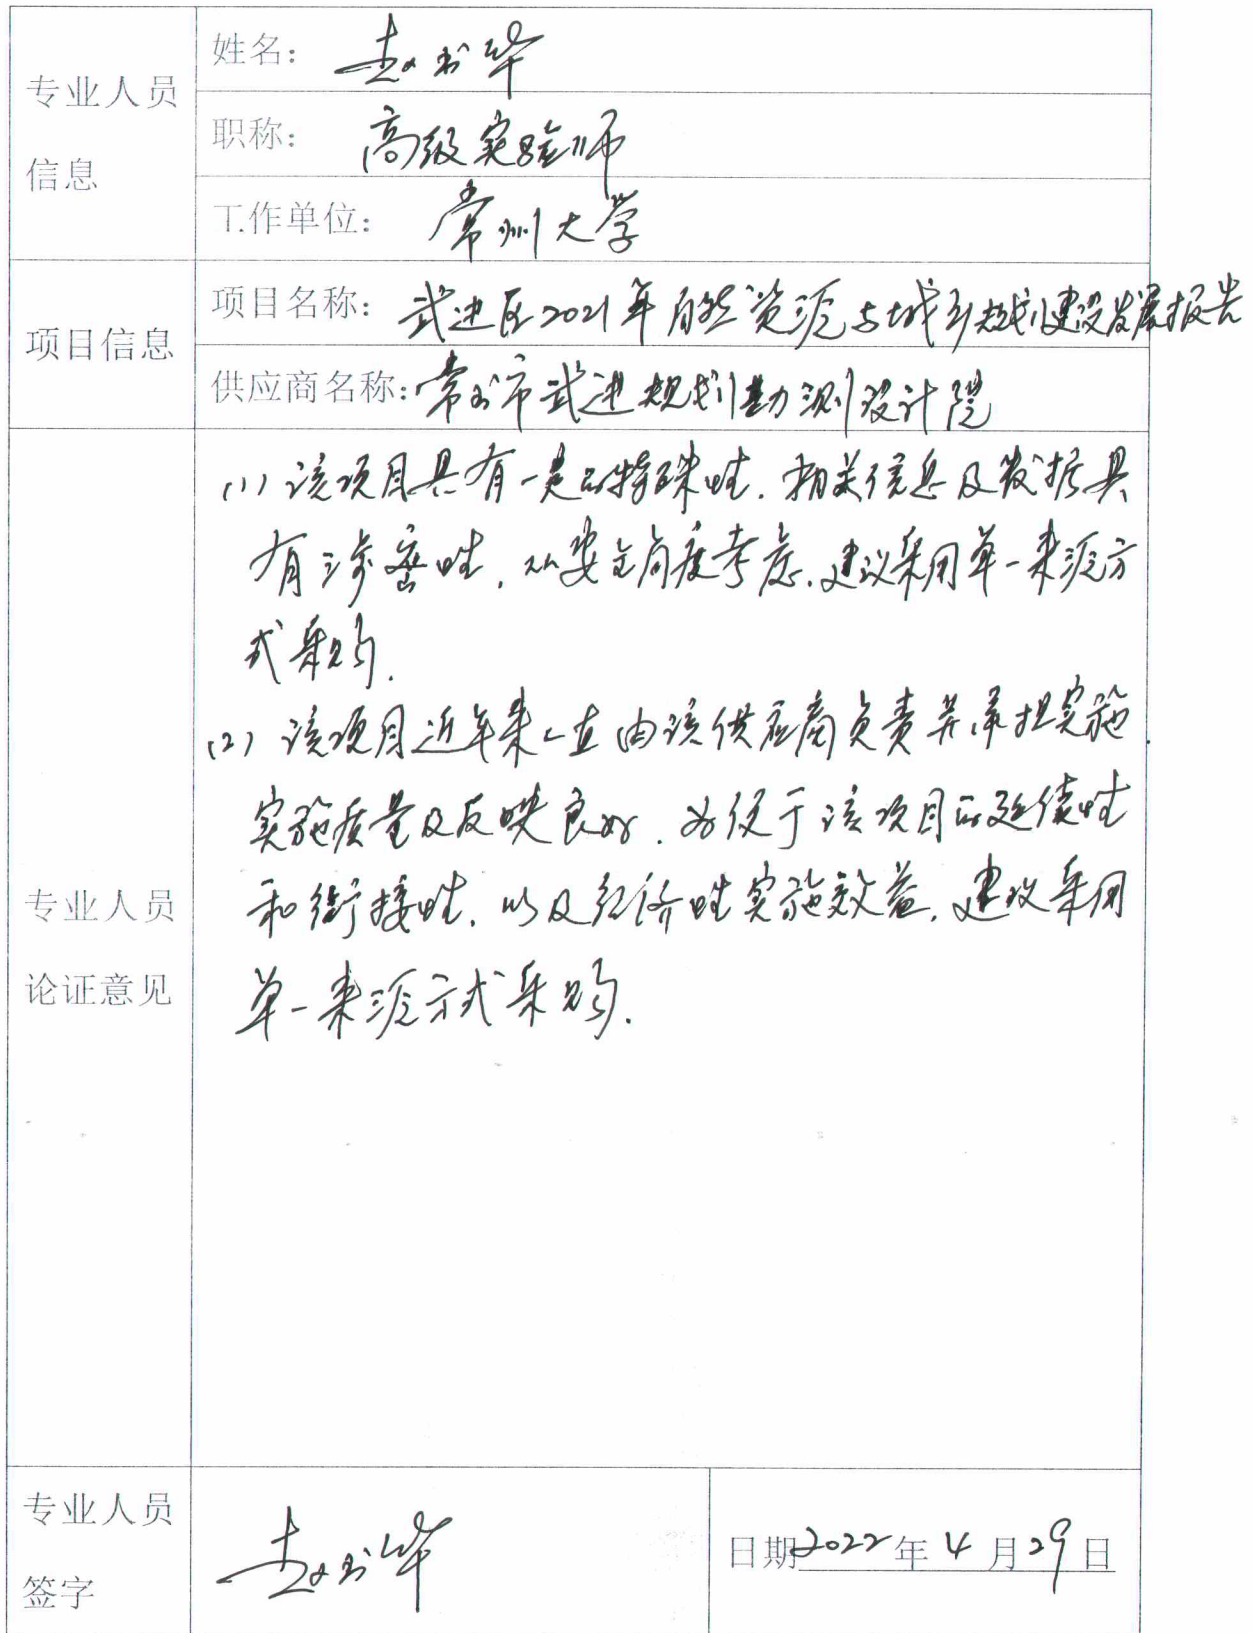 专业人员
信息
姓名：赵书华
职称：高级实验师
工作单位：常州大学
项目信息
项目名称：武进区2021年自然资源与城乡规划建设发展报告
供应商名称：常州市武进规划勘测设计院
专业人员
论证意见
(1) 该项目具有一定的特殊性. 相关信息及数据具
有涉密性, 从安全角度考虑, 建议采用单一来源方
式采购.
(2) 该项目近年来一直由该供应商负责并承担实施
实施质量及反映良好. 为便于该项目的延续性
和衔接性, 以及经济性实施效益, 建议采用
单一来源方式采购.
专业人员
签字
赵书华
日期2022年4月29日